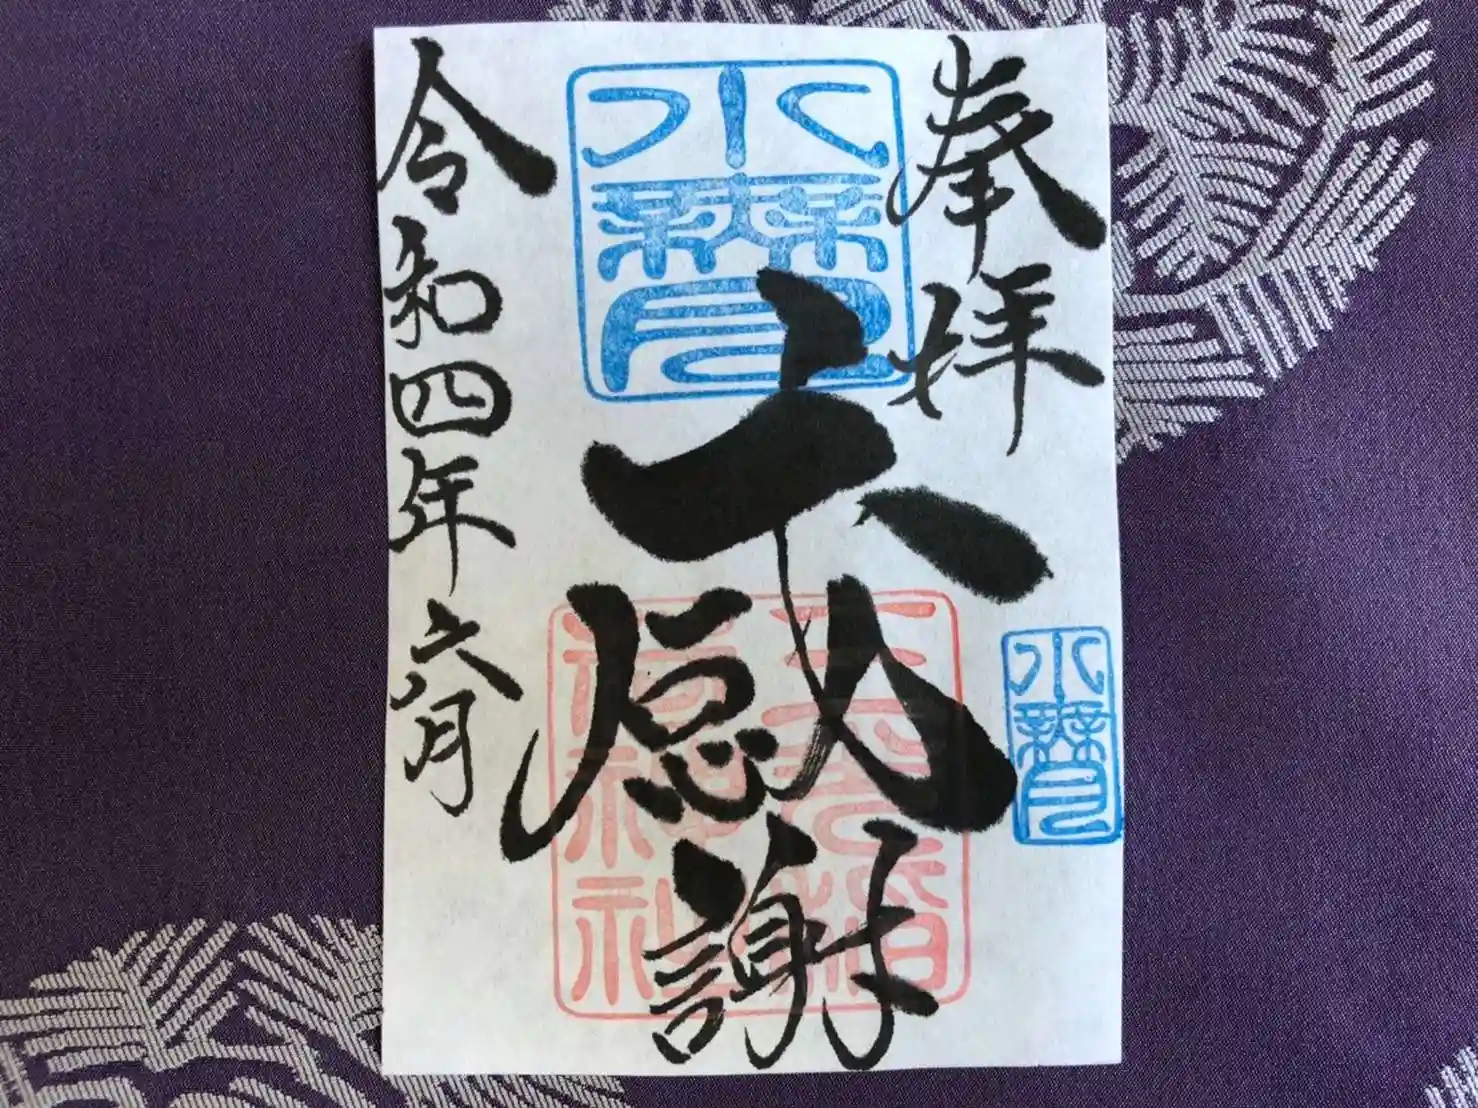 奉拝
水無月
感謝
水無月
令和四年六月